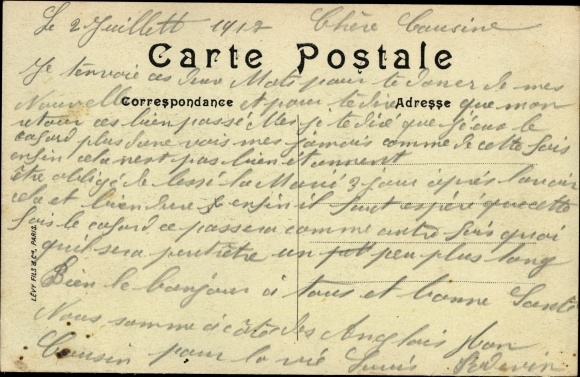 Le 2 Juillett 1917 Chère Cousine
Carte Postale
Je tenvoie ces deux Mots pour te doner de mes
Nouvelle Et pour te dire que mon
Correspondance Adresse
retour ces bien passé Mes je te diré que j'ai eus le
cafard plus d'une vois mes jamais comme de cette fois
enfin cela n'est pas bien étonnent
être obligé de lessé la Marié 3 jour après lavoir
cela et bien dure enfin il faut espéré que cette
fois le cafard ce passera comme autre fois quoi
qu'il sera peut être un pot peu plus long
Bien le bonjour a tous et bonne Santé
Nous somme a côté des Anglais Ton
Cousin pour la vie Louis
LÉVY FILS & Cie, PARIS